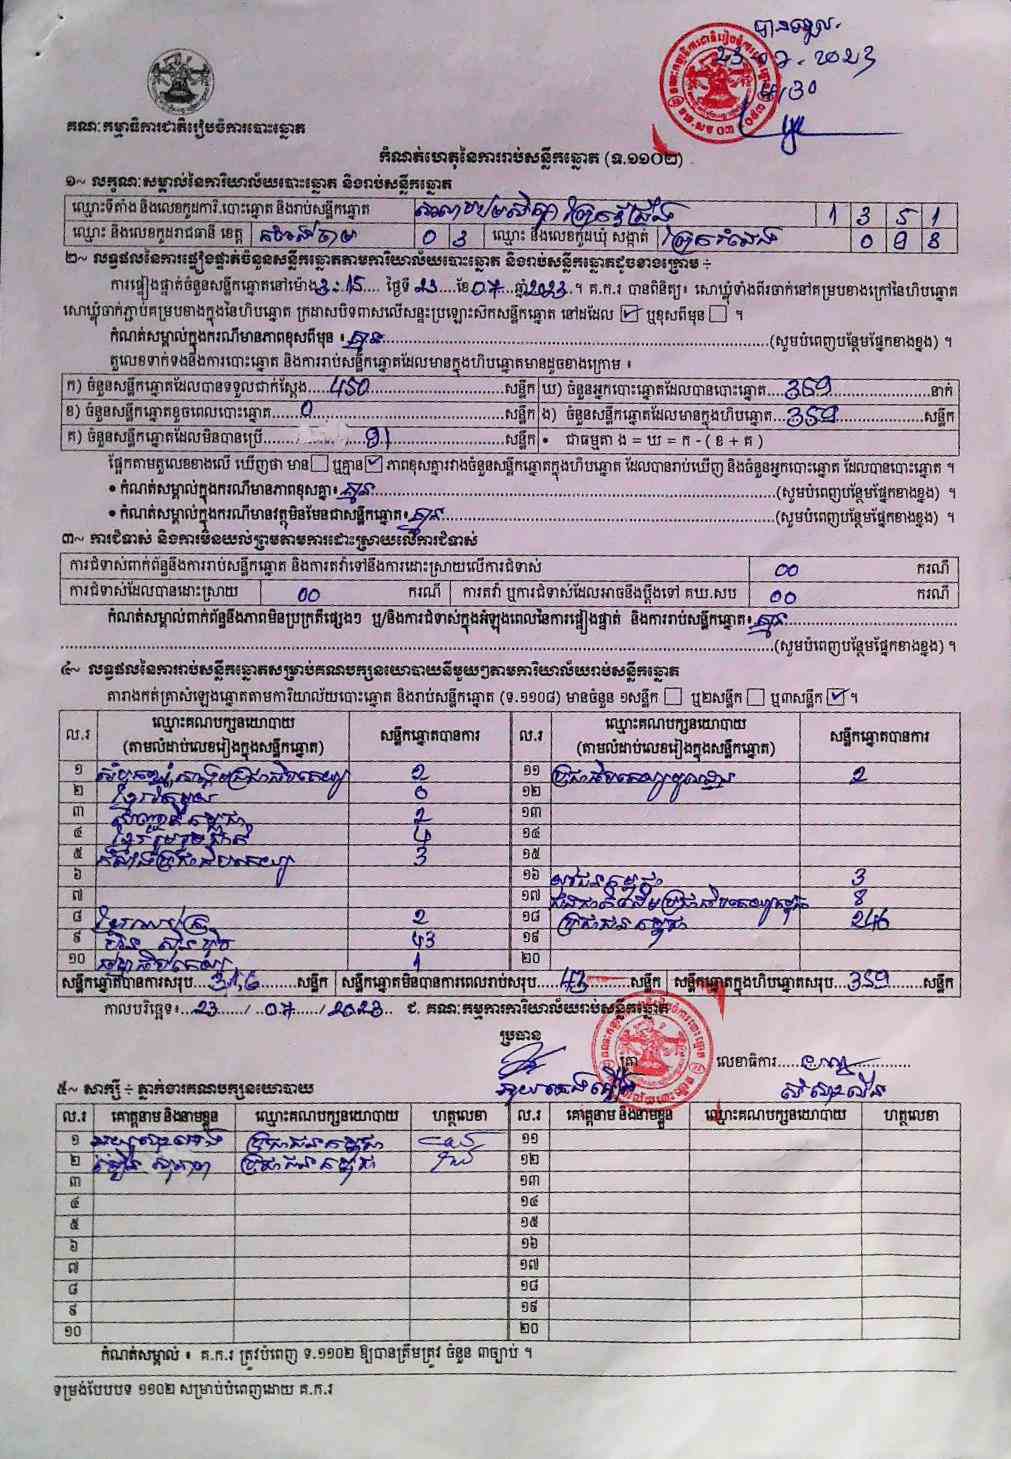 បានទទួល
គណៈកម្មាធិការជាតិរៀបចំការបោះឆ្នោត
កំណត់ហេតុនៃការរាប់សន្លឹកឆ្នោត (ទ.១១០២)
១~ លក្ខណៈសម្គាល់នៃការិយាល័យបោះឆ្នោត និងរាប់សន្លឹកឆ្នោត
ឈ្មោះទីតាំង និងលេខកូដការិ.បោះឆ្នោត និងរាប់សន្លឹកឆ្នោត 1 3 5 1
ឈ្មោះ និងលេខកូដរាជធានី ខេត្ត កំពង់ចាម 0 3 ឈ្មោះ និងលេខកូដឃុំ សង្កាត់
២~ លទ្ធផលនៃការផ្ទៀងផ្ទាត់ចំនួនសន្លឹកឆ្នោតតាមការិយាល័យបោះឆ្នោត និងរាប់សន្លឹកឆ្នោតដូចខាងក្រោម ÷
ការផ្ទៀងផ្ទាត់ចំនួនសន្លឹកឆ្នោតនៅម៉ោង 3:15 ថ្ងៃទី 23 ខែ 07 ឆ្នាំ 2023 ។ គ.ក.រ បានពិនិត្យ៖ សោឃ្លុំទាំងពីរចាក់នៅគម្របខាងក្រៅនៃហិបឆ្នោត
សោឃ្លុំចាក់ភ្ជាប់គម្របខាងក្នុងនៃហិបឆ្នោត ក្រដាសបិទពាសលើសន្ទះប្រឡោះសិកសន្លឹកឆ្នោត នៅដដែល ☑ ឬខុសពីមុន ☐ ។
កំណត់សម្គាល់ក្នុងករណីមានភាពខុសពីមុន ៖ គ្មាន (សូមបំពេញបន្ថែមផ្នែកខាងខ្នង) ។
តួលេខទាក់ទងនឹងការបោះឆ្នោត និងការរាប់សន្លឹកឆ្នោតដែលមានក្នុងហិបឆ្នោតមានដូចខាងក្រោម ៖
ក) ចំនួនសន្លឹកឆ្នោតដែលបានទទួលជាក់ស្ដែង 450 សន្លឹក ឃ) ចំនួនអ្នកបោះឆ្នោតដែលបានបោះឆ្នោត 359 នាក់
ខ) ចំនួនសន្លឹកឆ្នោតខូចពេលបោះឆ្នោត 0 សន្លឹក ង) ចំនួនសន្លឹកឆ្នោតដែលមានក្នុងហិបឆ្នោត 359 សន្លឹក
គ) ចំនួនសន្លឹកឆ្នោតដែលមិនបានប្រើ 91 សន្លឹក • ជាធម្មតា ង = ឃ = ក - ( ខ + គ )
ផ្អែកតាមតួលេខខាងលើ ឃើញថា មាន ☐ ឬគ្មាន ☑ ភាពខុសគ្នារវាងចំនួនសន្លឹកឆ្នោតក្នុងហិបឆ្នោត ដែលបានរាប់ឃើញ និងចំនួនអ្នកបោះឆ្នោត ដែលបានបោះឆ្នោត ។
• កំណត់សម្គាល់ក្នុងករណីមានភាពខុសគ្នា៖ គ្មាន (សូមបំពេញបន្ថែមផ្នែកខាងខ្នង) ។
• កំណត់សម្គាល់ក្នុងករណីមានវត្ថុមិនមែនជាសន្លឹកឆ្នោត៖ គ្មាន (សូមបំពេញបន្ថែមផ្នែកខាងខ្នង) ។
៣~ ការជំទាស់ និងការមិនយល់ព្រមតាមការដោះស្រាយលើការជំទាស់
ការជំទាស់ពាក់ព័ន្ធនឹងការរាប់សន្លឹកឆ្នោត និងការតវ៉ាទៅនឹងការដោះស្រាយលើការជំទាស់ 00 ករណី
ការជំទាស់ដែលបានដោះស្រាយ 00 ករណី ការតវ៉ា ឬការជំទាស់ដែលអាចនឹងប្ដឹងទៅ គឃ.សប 00 ករណី
កំណត់សម្គាល់ពាក់ព័ន្ធនឹងភាពមិនប្រក្រតីផ្សេងៗ ឬ/និងការជំទាស់ក្នុងអំឡុងពេលនៃការផ្ទៀងផ្ទាត់ និងការរាប់សន្លឹកឆ្នោត៖ គ្មាន
(សូមបំពេញបន្ថែមផ្នែកខាងខ្នង) ។
៤~ លទ្ធផលនៃការរាប់សន្លឹកឆ្នោតសម្រាប់គណបក្សនយោបាយនីមួយៗតាមការិយាល័យរាប់សន្លឹកឆ្នោត
តារាងកត់ត្រាសំឡេងឆ្នោតតាមការិយាល័យបោះឆ្នោត និងរាប់សន្លឹកឆ្នោត (ទ.១១០៨) មានចំនួន ១សន្លឹក ☐ ឬ២សន្លឹក ☐ ឬ៣សន្លឹក ☑ ។
ល.រ ឈ្មោះគណបក្សនយោបាយ (តាមលំដាប់លេខរៀងក្នុងសន្លឹកឆ្នោត) សន្លឹកឆ្នោតបានការ ល.រ ឈ្មោះគណបក្សនយោបាយ (តាមលំដាប់លេខរៀងក្នុងសន្លឹកឆ្នោត) សន្លឹកឆ្នោតបានការ
១ សំបុកឃ្មុំសង្គមប្រជាធិបតេយ្យ 2 ១១ ប្រជាធិបតេយ្យមូលដ្ឋាន 2
២ ខ្មែរ 0 ១២
៣ កម្ពុជា 2 ១៣
៤ ខ្មែររួបរួមជាតិ 4 ១៤
៥ កម្លាំងប្រជាធិបតេយ្យ 3 ១៥
៦ ១៦ យុវជនកម្ពុជា 3
៧ ១៧ 8
៨ 2 ១៨ ប្រជាជនកម្ពុជា 246
៩ ហ៊្វុនស៊ិនប៉ិច 43 ១៩
១០ 1 ២០
សន្លឹកឆ្នោតបានការសរុប 316 សន្លឹក សន្លឹកឆ្នោតមិនបានការពេលរាប់សរុប 43 សន្លឹក សន្លឹកឆ្នោតក្នុងហិបឆ្នោតសរុប 359 សន្លឹក
កាលបរិច្ឆេទ៖ 23 / 07 / 2023 ជ. គណៈកម្មការការិយាល័យរាប់សន្លឹកឆ្នោត
ប្រធាន
ត្រា លេខាធិការ
៥~ សាក្សី ÷ ភ្នាក់ងារគណបក្សនយោបាយ
ល.រ គោត្តនាម និងនាមខ្លួន ឈ្មោះគណបក្សនយោបាយ ហត្ថលេខា ល.រ គោត្តនាម និងនាមខ្លួន ឈ្មោះគណបក្សនយោបាយ ហត្ថលេខា
១ ប្រជាជនកម្ពុជា ១១
២ ប្រជាជនកម្ពុជា ១២
៣ ១៣
៤ ១៤
៥ ១៥
៦ ១៦
៧ ១៧
៨ ១៨
៩ ១៩
១០ ២០
កំណត់សម្គាល់ ៖ គ.ក.រ ត្រូវបំពេញ ទ.១១០២ ឱ្យបានត្រឹមត្រូវ ចំនួន ៣ច្បាប់ ។
ទម្រង់បែបបទ ១១០២ សម្រាប់បំពេញដោយ គ.ក.រ